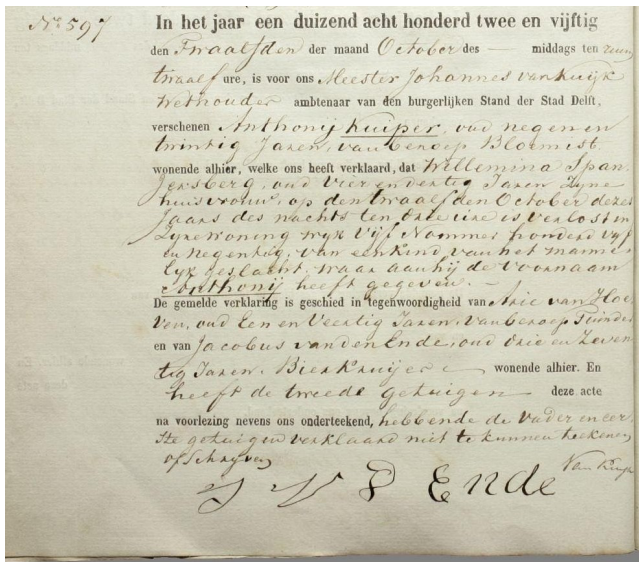 No. 597
In het jaar een duizend acht honderd twee en vijftig
den Twaalfden der maand October des — middags ten
twaalf ure, is voor ons Meester Johannes van Kuijk
Wethouder ambtenaar van den burgerlijken Stand der Stad Delft,
verschenen Anthonij Kuiper, oud negen en
twintig Jaren, van beroep Bloemist.
wonende alhier, welke ons heeft verklaard, dat Willemina Span
Jersberg, oud vier en dertig Jaren Zyne
huisvrouw, op den twaalfden October dezes
Jaars des nachts ten drie ure is verlost in
Zyne woning wyk Vijf Nommer honderd vyf
en negentig, van een Kind van het manne
lyk geslacht, waar aan hij de voornaam
Anthonij heeft gegeven. —
De gemelde verklaring is geschied in tegenwoordigheid van Arie van Hoe
ven, oud Een en Veertig Jaren, van beroep Tuinder
en van Jacobus van den Ende, oud drie en Zeven
tig Jaren. Bierkruijer — wonende alhier. En
heeft de tweede getuigen — deze acte
na voorlezing nevens ons onderteekend, hebbende de vader en eer
ste getuigen verklaard niet te kunnen teekenen
of Schryven
J V D Ende
Van Kuijk